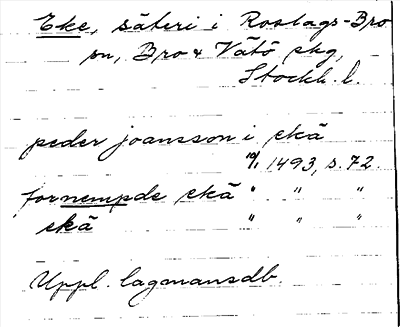 Eke, säteri i Roslags-Bro
sn, Bro & Vätö skg,
Stockh. l.
peder joansson i ekä
10/1 1493, s. 72.
fornempde ekä " " "
ekä " " "
Uppl. lagmansdb.